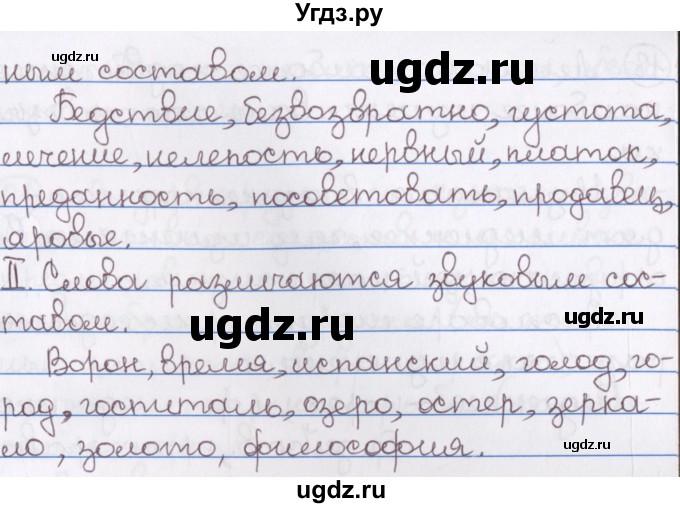 Угдз.ру
ным составом.
ugdz.ru
ugdz.ru
Бедствие, безвозвратно, густота,
лечение, нелепость, нервный, платок,
преданность, посоветовать, продавец,
яровые.
II. Слова различаются звуковым сос-
тавом.
ugdz.ru
ugdz.ru
Ворон, время, испанский, голод, го-
род, госпиталь, озеро, остер, зерка-
ло, золото, философия.
ugdz.ru
ugdz.ru